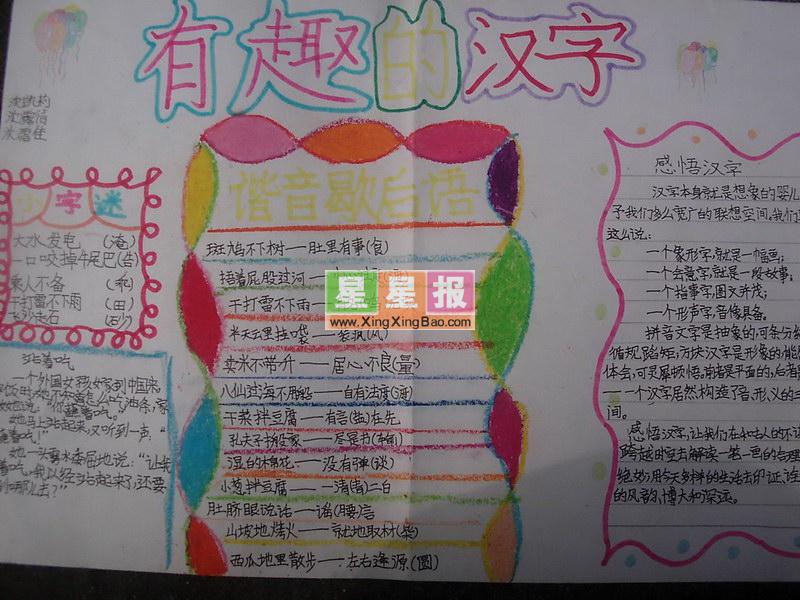 有趣的汉字
小字迷
大水发电 (淹)
一口咬掉牛尾巴(告)
乘人不备 (乖)
干打雷不下雨 (田)
飞沙走石 (少)
谐音歇后语
斑鸠不下树——肚里有事(包)
捂着屁股过河——
干打雷不下雨——
半天云里挂口袋——装疯(风)
卖米不带升——居心不良(量)
八仙过海不用船——自有法度(渡)
干菜拌豆腐——有言(盐)在先
孔夫子搬家——尽是书(输)
湿的棉花——没有弹(谈)
小葱拌豆腐——清(青)二白
肚脐眼说话——谣(腰)言
山坡地烧火——就地取材(柴)
西瓜地里散步——左右逢源(圆)
星星报
www.XingXingBao.com
站着吃
一个外国女孩嫁到中国来,
她马上站起来,又听到一声:
她一头雾水委屈地说:
吃,我已经站起来了,还要
感悟汉字
汉字本身就是想象的婴儿
予我们多么宽广的联想空间。我们
这么说:
一个象形字,就是一幅画;
一个会意字,就是一段故事;
一个指事字,图文并茂;
一个形声字,音像具备。
拼音文字是抽象的,可条分
循规蹈矩;方块汉字是形象的,能
体会,可灵犀顿悟;前者是平面的,后者
一个汉字居然构造了音、形、义的三
间。
感悟汉字,让我们在和古人的不
跨越时空去解读一笔一画的合理
绝妙;用今天多样的生活去印证、诠
的风韵、博大和深远。